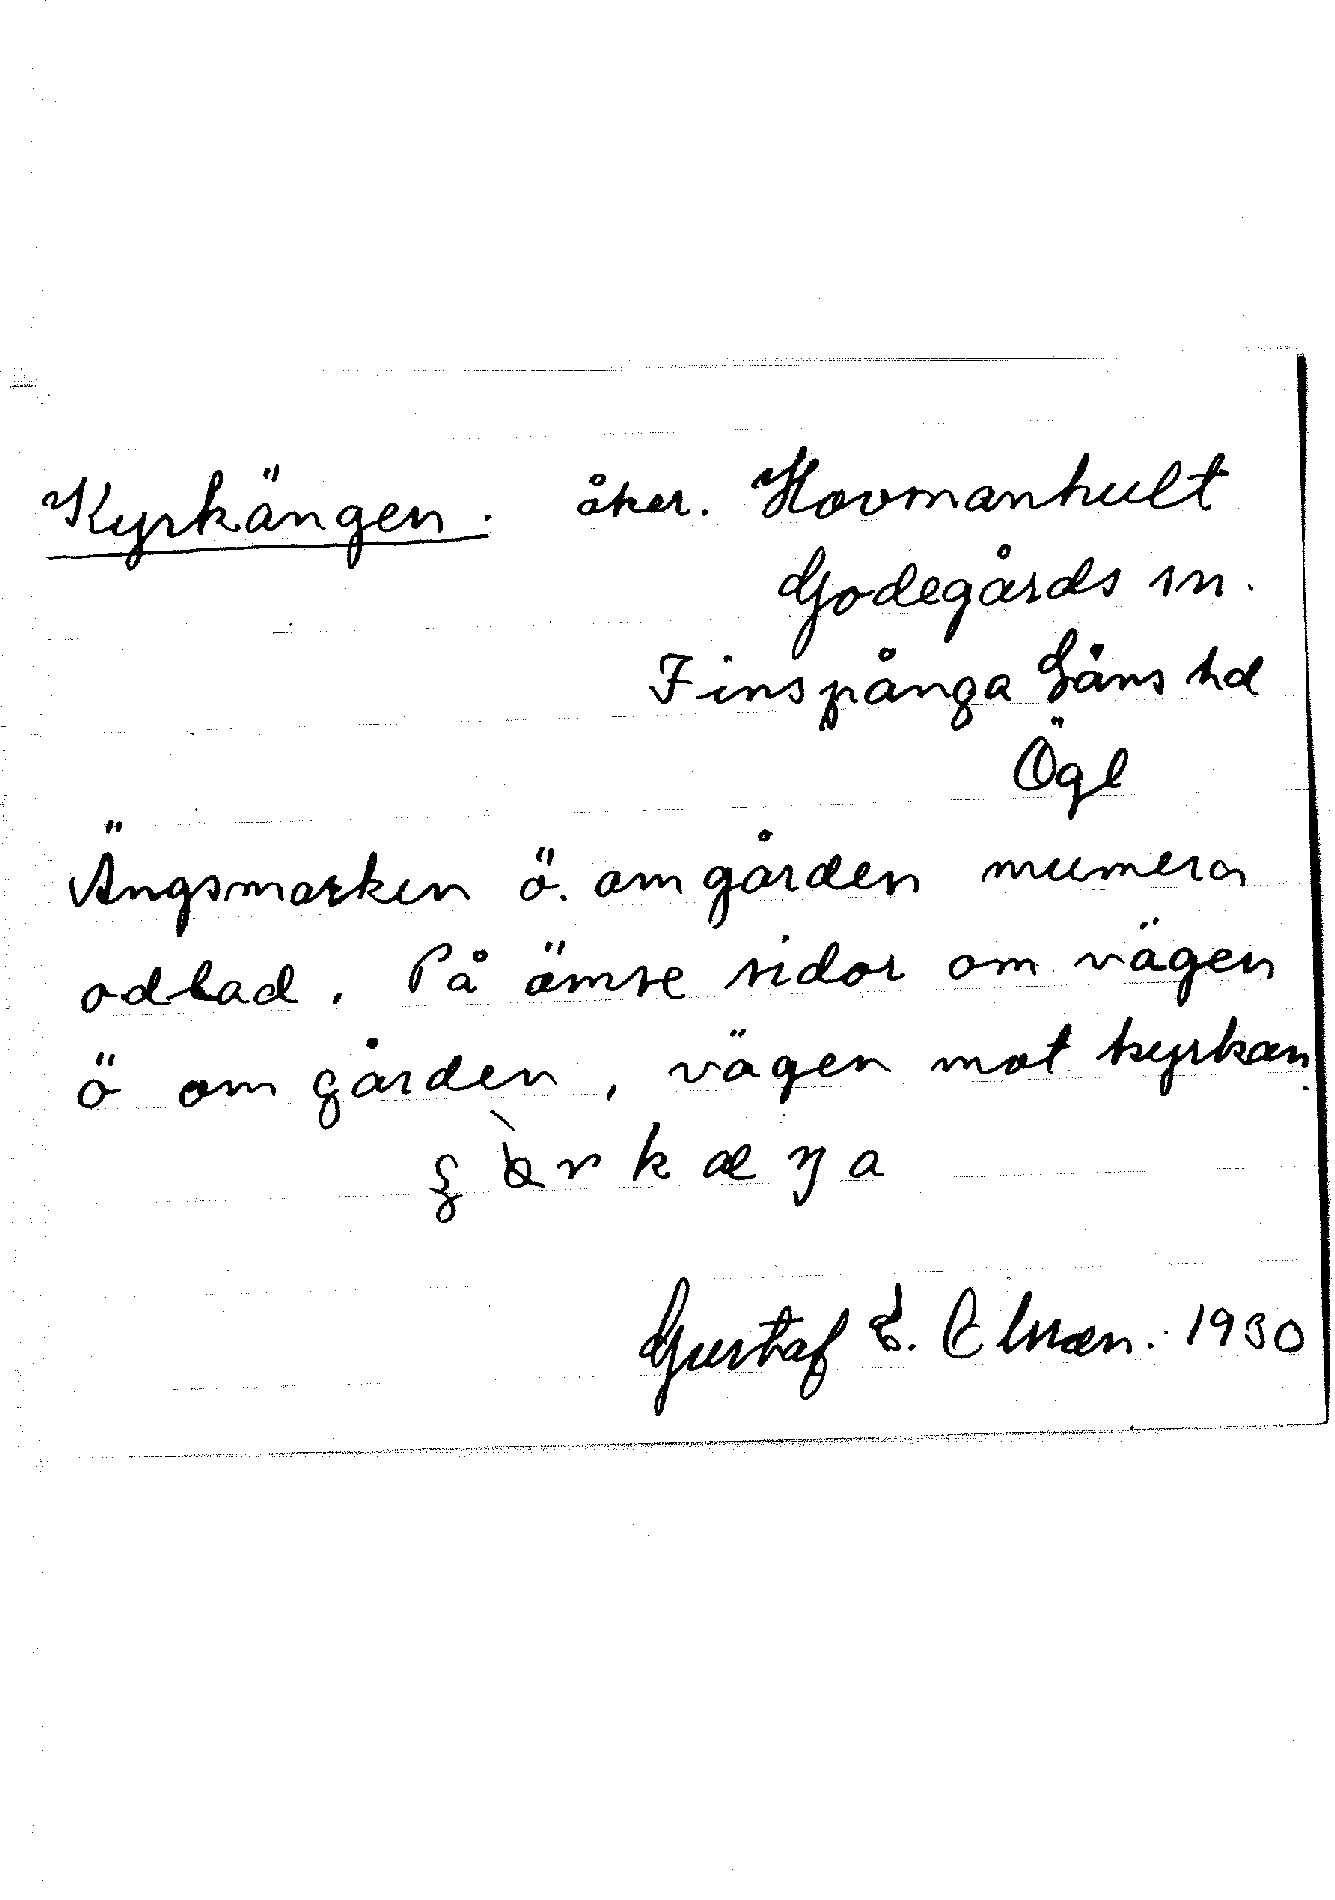 Kyrkängen. åker. Hovmanhult
Godegårds sn.
Finspånga Läns hd
Ögl
Ängsmarken ö. om gården numera
odlad. På ömse sidor om vägen
ö om gården, vägen mot kyrkan.
Gustaf E. 1930